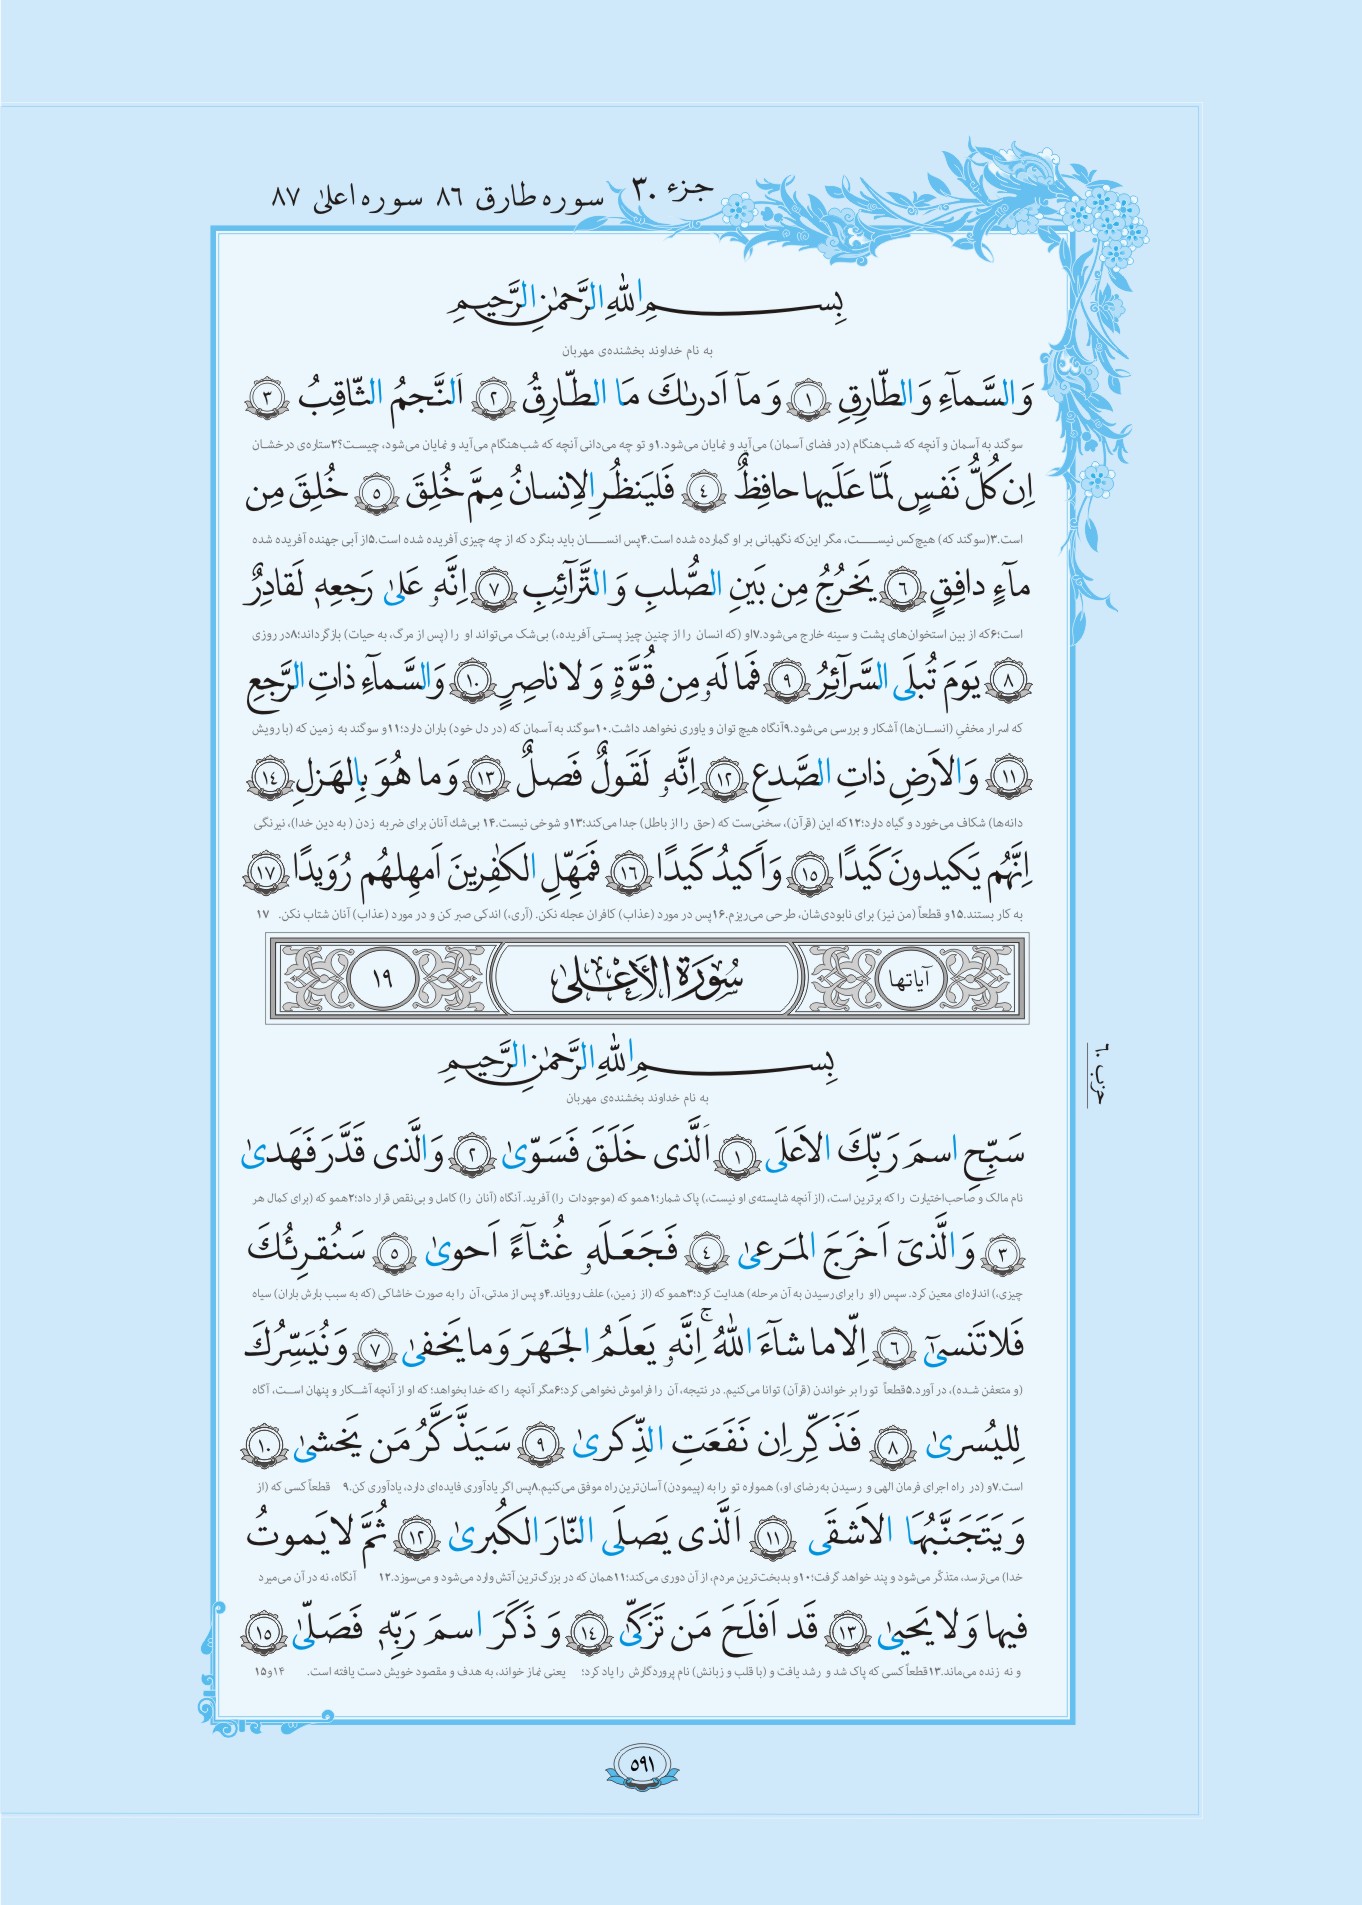 جزء ۳۰ سوره طارق ۸۶ سوره اعلیٰ ۸۷
بِسمِ اللهِ الرَّحمٰنِ الرَّحیمِ
به نام خداوند بخشنده‌ی مهربان
وَالسَّمآءِ وَالطّارِقِ ۱ وَ مآ اَدرىٰكَ مَا الطّارِقُ ۲ اَلنَّجمُ الثّاقِبُ ۳
سوگند به آسمان و آنچه که شب‌هنگام (در فضای آسمان) می‌آید و نمایان می‌شود.۱و تو چه می‌دانی آنچه که شب‌هنگام می‌آید و نمایان می‌شود، چیست؟۲ستاره‌ی درخشان
اِن كُلُّ نَفسٍ لَمّا عَلَیها حافِظٌ ۴ فَلیَنظُرِ الاِنسانُ مِمَّ خُلِقَ ۵ خُلِقَ مِن
است.۳(سوگند که) هیچ‌کس نیست، مگر این‌که نگهبانی بر او گمارده شده است.۴پس انسان باید بنگرد که از چه چیزی آفریده شده است.۵از آبی جهنده آفریده شده
مآءٍ دافِقٍ ۶ یَخرُجُ مِن بَینِ الصُّلبِ وَ التَّرآئِبِ ۷ اِنَّهٗ عَلىٰ رَجعِهٖ لَقادِرٌ
است؛۶که از بین استخوان‌های پشت و سینه خارج می‌شود.۷او (که انسان را از چنین چیز پستی آفریده،) بی‌شک می‌تواند او را (پس از مرگ، به حیات) بازگرداند؛۸در روزی
۸ یَومَ تُبلَى السَّرآئِرُ ۹ فَما لَهٗ مِن قُوَّةٍ وَ لا ناصِرٍ ۱۰ وَالسَّمآءِ ذاتِ الرَّجعِ
که اسرار مخفی (انسان‌ها) آشکار و بررسی می‌شود.۹آنگاه هیچ توان و یاوری نخواهد داشت.۱۰سوگند به آسمان که (در دل خود) باران دارد؛۱۱و سوگند به زمین که (با رویش
۱۱ وَالاَرضِ ذاتِ الصَّدعِ ۱۲ اِنَّهٗ لَقَولٌ فَصلٌ ۱۳ وَ ما هُوَ بِالهَزلِ ۱۴
دانه‌ها) شکاف می‌خورد و گیاه دارد؛۱۲که این (قرآن)، سخنی‌ست که (حق را از باطل) جدا می‌کند؛۱۳و شوخی نیست.۱۴ بی‌شك آنان برای ضربه زدن ( به دین خدا)، نیرنگی
اِنَّهُم یَكیدونَ كَیدًا ۱۵ وَ اَكیدُ كَیدًا ۱۶ فَمَهِّلِ الكٰفِرینَ اَمهِلهُم رُوَیدًا ۱۷
به کار بستند.۱۵و قطعاً (من نیز) برای نابودی‌شان، طرحی می‌ریزم.۱۶پس در مورد (عذاب) کافران عجله نکن. (آری،) اندکی صبر کن و در مورد (عذاب) آنان شتاب نکن. ۱۷
آیاتها سُورَةُ الأَعْلىٰ ۱۹
بِسمِ اللهِ الرَّحمٰنِ الرَّحیمِ
حزب ۶۰
به نام خداوند بخشنده‌ی مهربان
سَبِّحِ اسمَ رَبِّكَ الاَعلَى ۱ اَلَّذی خَلَقَ فَسَوّىٰ ۲ وَالَّذی قَدَّرَ فَهَدىٰ
نام مالک و صاحب‌اختیارت را که برترین است، (از آنچه شایسته‌ی او نیست،) پاک شمار؛۱همو که (موجودات را) آفرید. آنگاه (آنان را) کامل و بی‌نقص قرار داد؛۲همو که (برای کمال هر
۳ وَالَّذیٓ اَخرَجَ المَرعىٰ ۴ فَجَعَلَهٗ غُثآءً اَحوىٰ ۵ سَنُقرِئُكَ
چیزی،) اندازه‌ای معین کرد. سپس (او را برای رسیدن به آن مرحله) هدایت کرد؛۳همو که (از زمین،) علف رویاند.۴و پس از مدتی، آن را به صورت خاشاکی (که به سبب بارش باران) سیاه
فَلا تَنسىٰٓ ۶ اِلّا ما شآءَ اللهُ ۚ اِنَّهٗ یَعلَمُ الجَهرَ وَ ما یَخفىٰ ۷ وَ نُیَسِّرُكَ
(و متعفن شده)، در آورد.۵قطعاً تو را بر خواندن (قرآن) توانا می‌کنیم. در نتیجه، آن را فراموش نخواهی کرد؛۶مگر آنچه را که خدا بخواهد؛ که او از آنچه آشکار و پنهان است، آگاه
لِلیُسرىٰ ۸ فَذَكِّر اِن نَفَعَتِ الذِّكرىٰ ۹ سَیَذَّكَّرُ مَن یَخشىٰ ۱۰
است.۷و (در راه اجرای فرمان الهی و رسیدن به رضای او،) همواره تو را به (پیمودن) آسان‌ترین راه موفق می‌کنیم.۸پس اگر یادآوری فایده‌ای دارد، یادآوری کن.۹ قطعاً کسی که (از
وَ یَتَجَنَّبُهَا الاَشقَى ۱۱ اَلَّذی یَصلَى النّارَ الكُبرىٰ ۱۲ ثُمَّ لا یَموتُ
خدا) می‌ترسد، متذکّر می‌شود و پند خواهد گرفت؛۱۰و بدبخت‌ترین مردم، از آن دوری می‌کند؛۱۱همان که در بزرگ‌ترین آتش وارد می‌شود و می‌سوزد.۱۲ آنگاه، نه در آن می‌میرد
فیها وَ لا یَحیىٰ ۱۳ قَد اَفلَحَ مَن تَزَكّىٰ ۱۴ وَ ذَكَرَ اسمَ رَبِّهٖ فَصَلّىٰ ۱۵
و نه زنده می‌ماند.۱۳قطعاً کسی که پاک شد و رشد یافت و (با قلب و زبانش) نام پروردگارش را یاد کرد؛ یعنی نماز خواند، به هدف و مقصود خویش دست یافته است. ۱۴و۱۵
۵۹۱